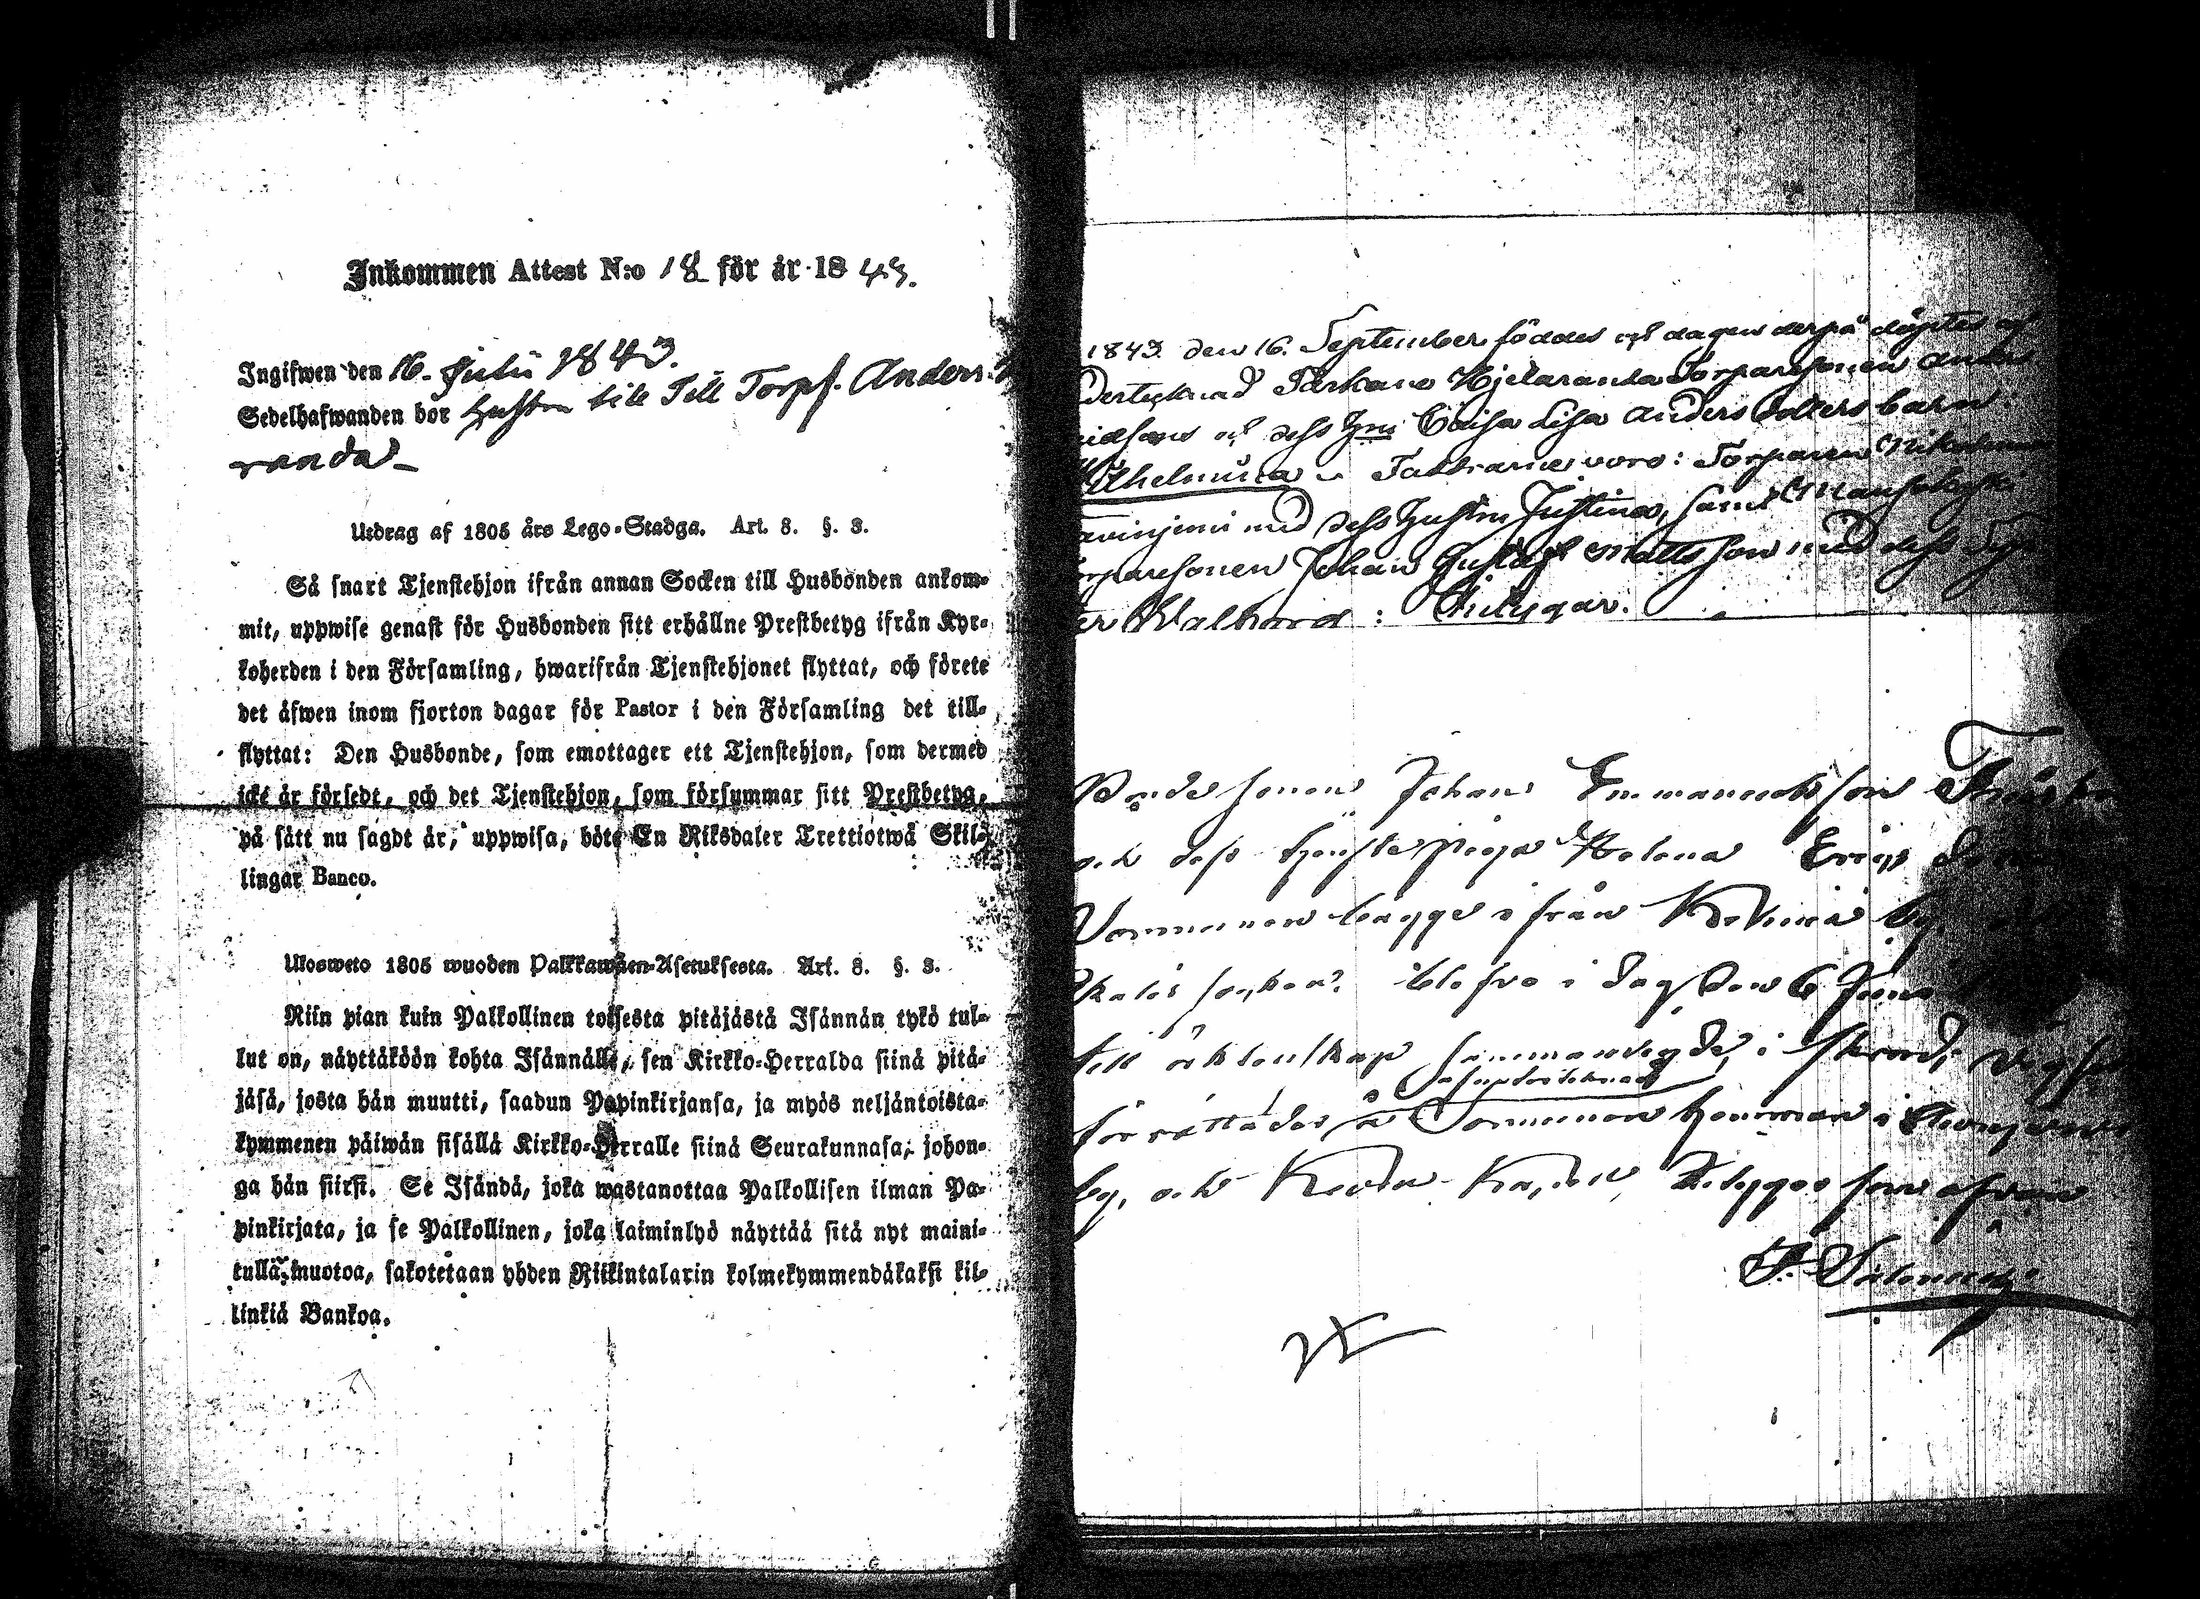 Inkommen Attest N:o 18 för år 1843.
Ingifwen den 16. Julii 1843.
Sedelhafwanden bor hustru till Torpf. Anders
randa
Utdrag af 1805 års Lego-Stadga. Art. 8. §. 3.
Så snart Tjenstehjon ifrån annan Socken till Husbonden ankom-
mit, uppwise genast för Husbonden sitt erhållne Prestbetyg ifrån Kyr-
koherden i den Församling, hwarifrån Tjenstehjonet flyttat, och förete
det äfwen inom fjorton dagar för Pastor i den Församling det till-
flyttat: Den Husbonde, som emottager ett Tjenstehjon, som dermed
icke är försedt, och det Tjenstehjon, som försummar sitt Prestbetyg,
på sätt nu sagdt är, uppwisa, böte En Riksdaler Trettiotwå Skil-
lingar Banco.
Ulosweto 1805 wuoden Palkkawäen-Asetuksesta. Art. 8. §. 3.
Niin pian kuin Palkollinen toisesta pitäjästä Isännän tykö tul-
lut on, näyttäköön kohta Isännälle, sen Kirkko-Herralda siinä pitä-
jäsä, josta hän muutti, saadun Papinkirjansa, ja myös neljäntoista-
kymmenen päiwän sisällä Kirkko-Herralle siinä Seurakunnasa, johon-
ga hän siirsi. Se Isändä, joka wastanottaa Palkollisen ilman Pa-
pinkirjata, ja se Palkollinen, joka laiminlyö näyttää sitä nyt maini-
tulla muotoa, sakotetaan yhden Riikintalarin kolmekymmendäkaksi kil-
linkiä Bankoa.
1843 den 16. September föddes och dagen derpå döptes af
Torparesonen Anders
och dess Hru Cajsa Lisa Anders dotters barn
Wilhelmina Faddrarne voro: Torparen
med dess Hustru Justina, samt
Torparesonen Johan Gustaf Mattsson med dess
Walborg: Betygar.
Bondesonen Johan Emmanuelsson
och dess tjenstepiga Helena Erics
Sommunen bägge ifrån by
socken, blefvo i dag den 6 Juni
till äktenskap sammanvigde, i
förrättades å hemman i
by, och Betygas som ofvan